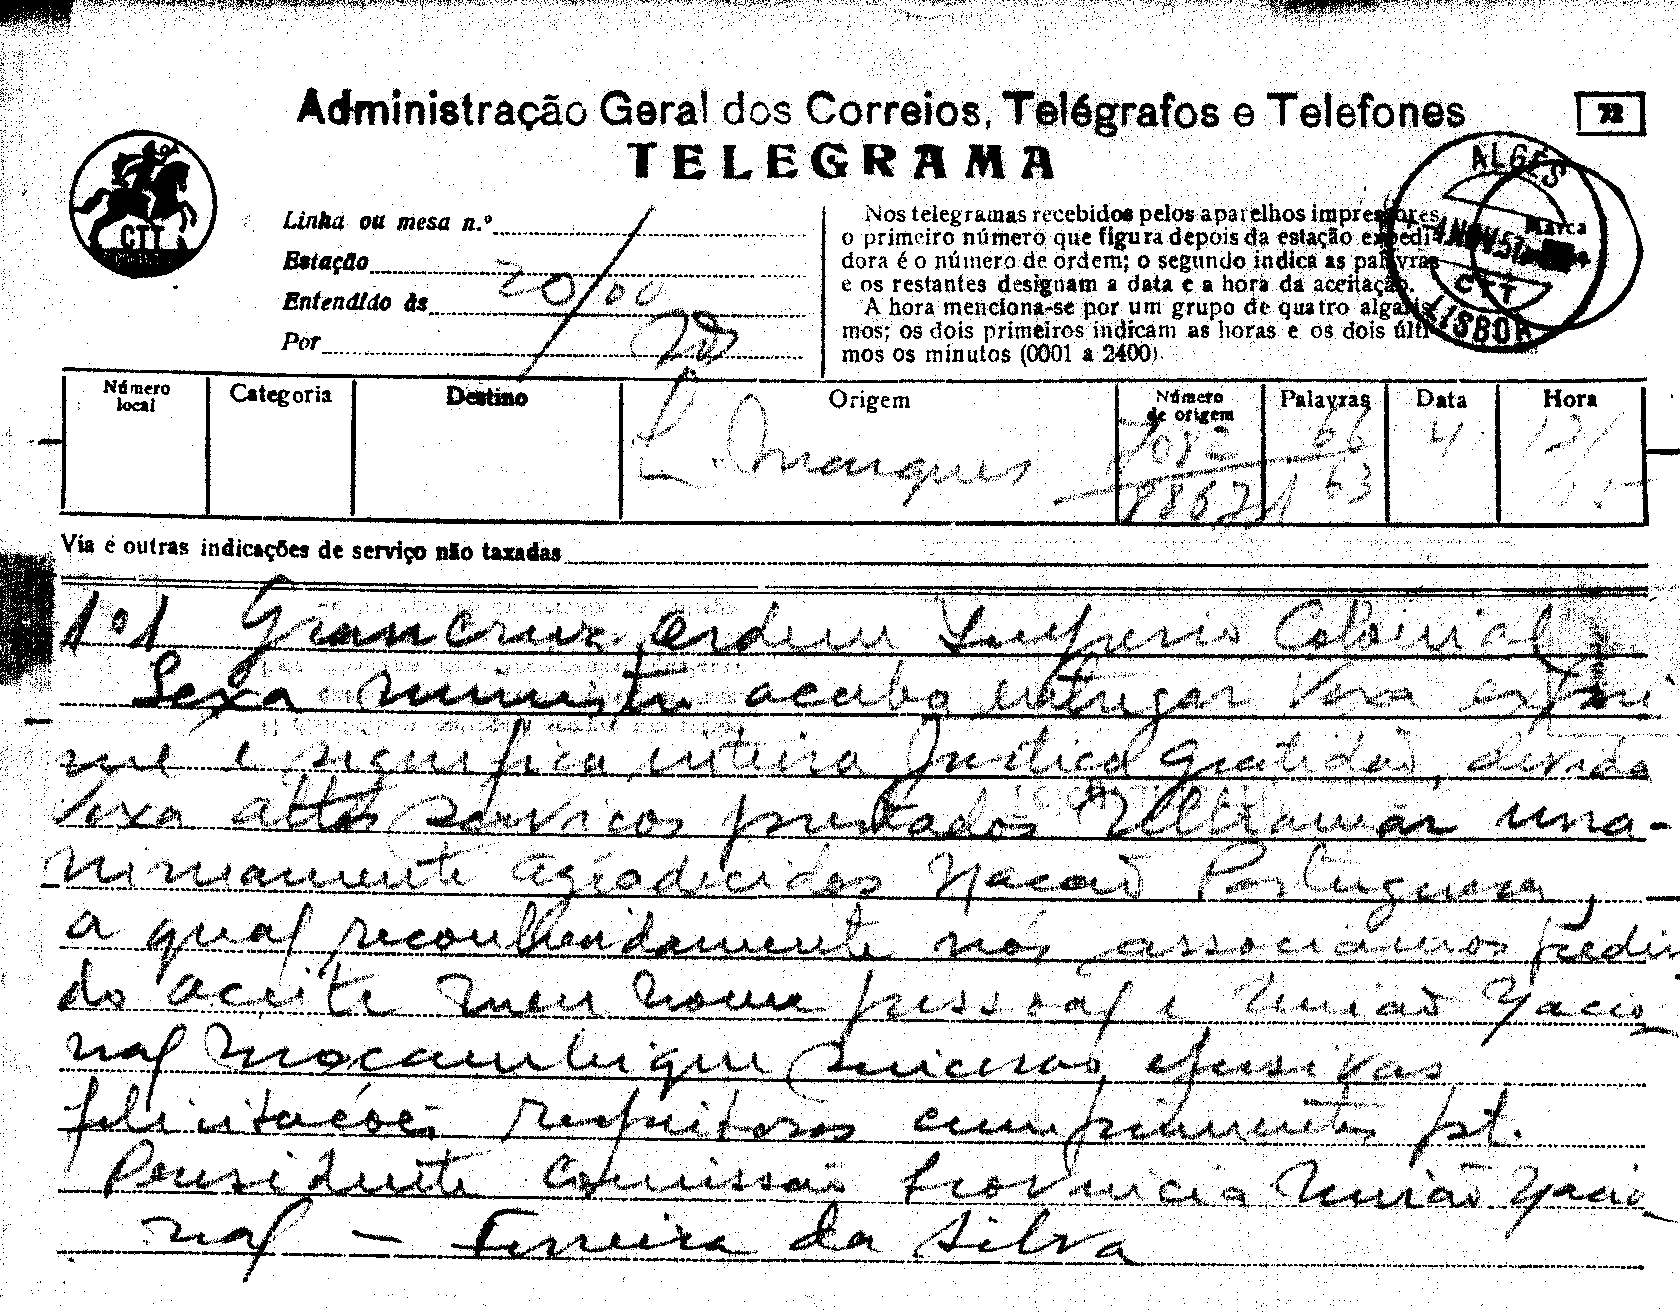 Administração Geral dos Correios, Telégrafos e Telefones
72
TELEGRAMA
CTT
ALGÉS
4 NOV 51
CTT
LISBOA
Marca
Linha ou mesa n.º
Estação
Entendido às 20/00
Por
Nos telegramas recebidos pelos aparelhos impressores
o primeiro número que figura depois da estação expedi-
dora é o número de ordem; o segundo indica as palavras
e os restantes designam a data e a hora da aceitação.
A hora menciona-se por um grupo de quatro algaris-
mos; os dois primeiros indicam as horas e os dois últi-
mos os minutos (0001 a 2400)
Número local
Categoria
Destino
Origem
Número de origem
Palavras
Data
Hora
L. Marques
66
4
63
Via e outras indicações de serviço não taxadas
Grancruz Ordem Imperio Colonial
Sexa ministro acaba entregar Vexa expri
me e significa inteira Justica Gratidão, devida
Vexa altos serviços prestados Ultramar una-
nimamente agradecidos Nação Portuguesa,
a qual reconhecidamente nos associamos pedin
do aceite meu nome pessoal e União Nacio
nal Moçambique sinceras efusivas
felicitações respeitosos cumprimentos pt.
Presidente Comissão Provincia União Nacio
nal - Ferreira da Silva